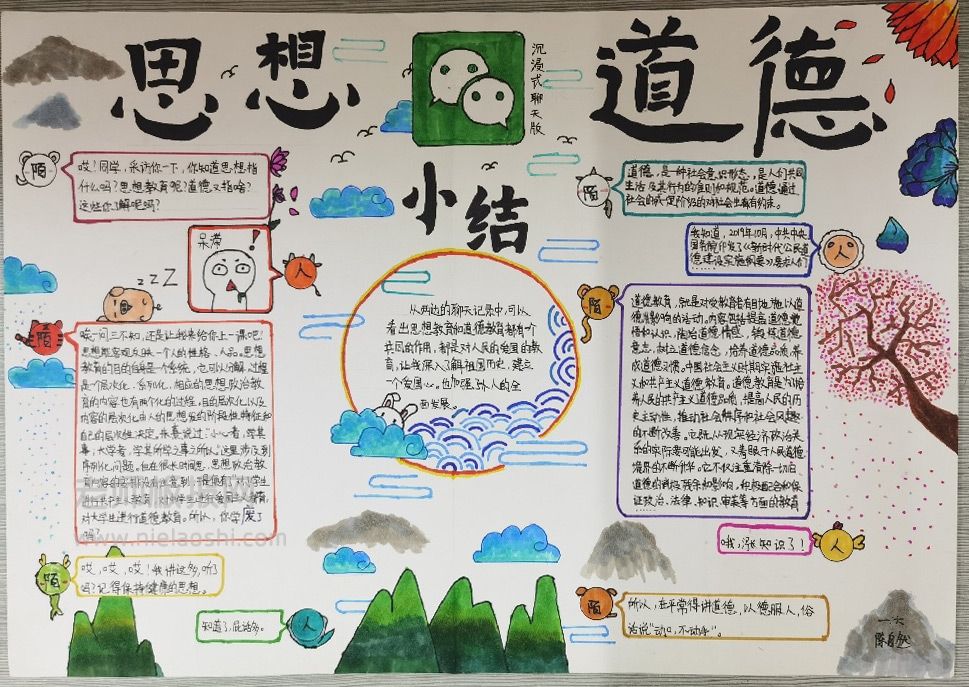 思想 道德
沉浸式聊天版
小结
陌
哎！同学，采访你一下，你知道思想指
什么吗？思想教育呢？道德又指啥？
这些你了解吗？
呆滞
！
人
zZZ
陌
哎一问三不知，还是让我来给你上一课吧！
思想既客观反映一个人的性格、人品。思想
教育的目的自身是个系统，也可以分解，过程
是个层次化、系列化，相应的思想政治教
育的内容也有两个化的过程，目的层次化以及
内容的层次化由人的思想发的阶段性特征和
自己的层次性决定。朱熹说过："小心者，学其
事，大学者，学其所学之事之所以"这里涉及到
序列化问题。但在很长时间里，思想政治教
对大学生进行道德教育。所以，你学废了
吗？
www.nielaoshi.com
陌
哎，哎，哎！我讲这多，听了
吗？记得保持健康的思想。
知道了，屁话多。
人
从两边的聊天记录中，可以
看出思想教育和道德教育都有一个
共同的作用，都是对人民的爱国的教
育，让我深入了解祖国历史，建立
一个爱国心。也加强
面发展。
陌
道德，是一种社会意识形态，是人们共同
生活及其行为的准则和规范。道德通过
社会的或一定阶级的对社会生有有约束。
我知道，2019年10月，中共中央
国务院印发了《新时代公民道
德建设实施纲要》要求人们……
人
陌
道德教育，就是对受教育者有目地施以道
德影响的活动。内容包括提高道德觉
悟和认识，陶冶道德情感，锻炼道德
意志，树立道德信念，培养道德品质，养
成道德习惯。中国社会主义时期实施社主
义和共产主义道德教育。道德教育是为培
养人民的共产主义道德品质，提高人民的历
史主动性，推动社会秩序和社会风气
的不断改善。它既从现实经济政治关
系的实际要可能出发，又着眼于人民道德
境界的不断升华。它不仅注意清除一切旧
道德的残余和影响，积极配合和保
证政治、法律、知识、审美等方面的教育
哦，涨知识了！
人
陌
所以，在平常得讲道德，以德服人，俗
话说"动口，不动手"。
一六
陈自然